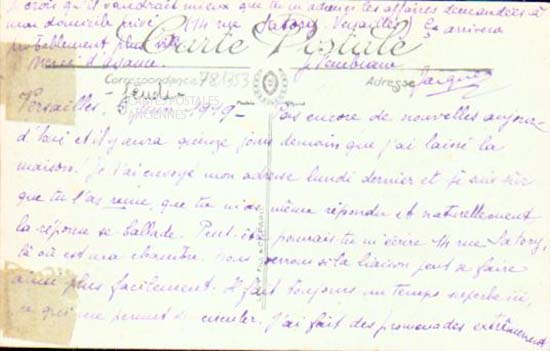 crois qu'il vaudrait mieux que tu m'adresses les affaires demandées à
mon domicile privé (14 rue Satory Versailles) Ça arrivera
probablement plus vite.
Merci d'avance. Je t'embrasse
Carte Postale
Jacques
Correspondance 781353 Adresse
CARTES POSTALES
ANCIENNES
Versailles, 1919 - Pas encore de nouvelles aujour-
d'hui et il y aura quinze jours demain que j'ai laissé la
maison! Je t'ai envoyé mon adresse lundi dernier et je suis sûr
que tu l'as reçue, que tu m'as même répondu et naturellement
la réponse se ballade. Peut-être pourrais tu m'écrire 14 rue Satory,
là où est ma chambre. Nous verrons si la liaison peut se faire
ainsi plus facilement. Il fait toujours un temps superbe ici,
ce qui me permet de circuler. J'ai fait des promenades extrêmement